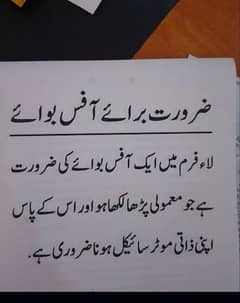 ضرورت برائے آفس بوائے
لاء فرم میں ایک آفس بوائے کی ضرورت
ہے جو معمولی پڑھا لکھا ہو اور اس کے پاس
اپنی ذاتی موٹر سائیکل ہونا ضروری ہے۔